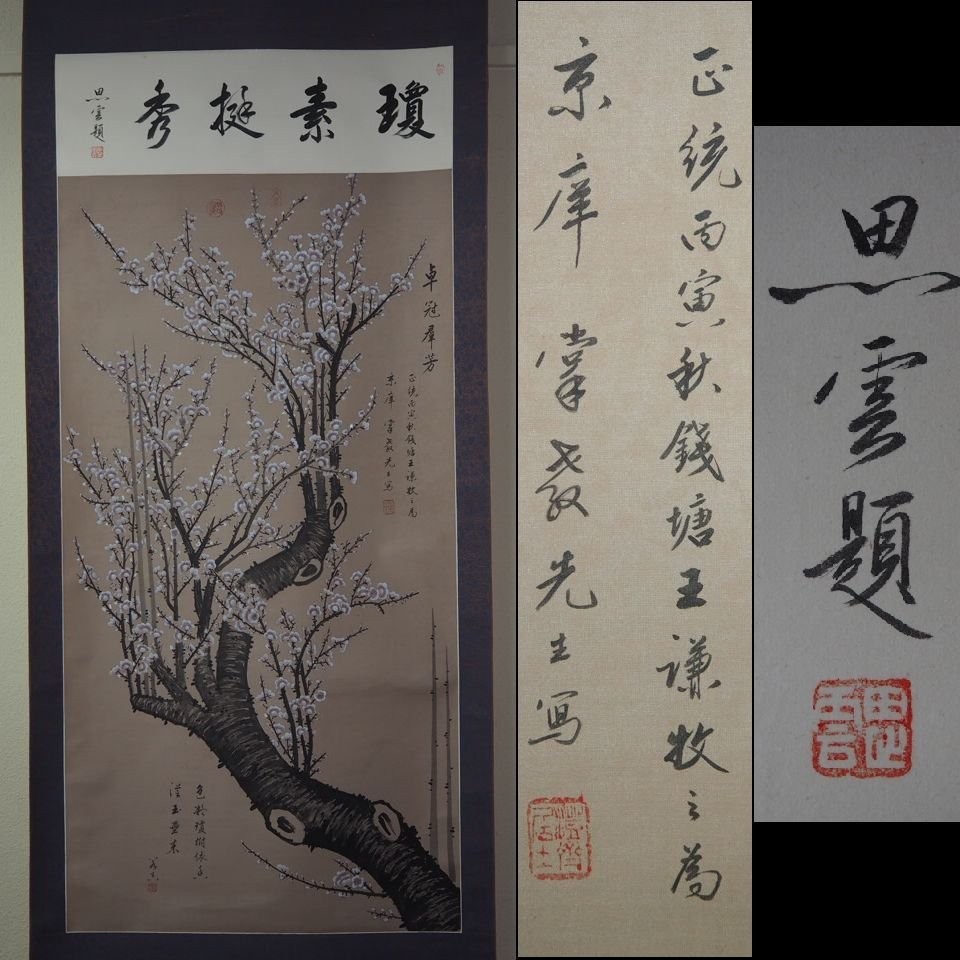 瓊素挺秀
思雲題
卓冠羣芳
正統丙寅秋錢塘王謙牧之為
京庠掌教先生寫
色於瓊樹依
従玉
正統丙寅秋錢塘王謙牧之為
京庠掌教先生寫
思雲題